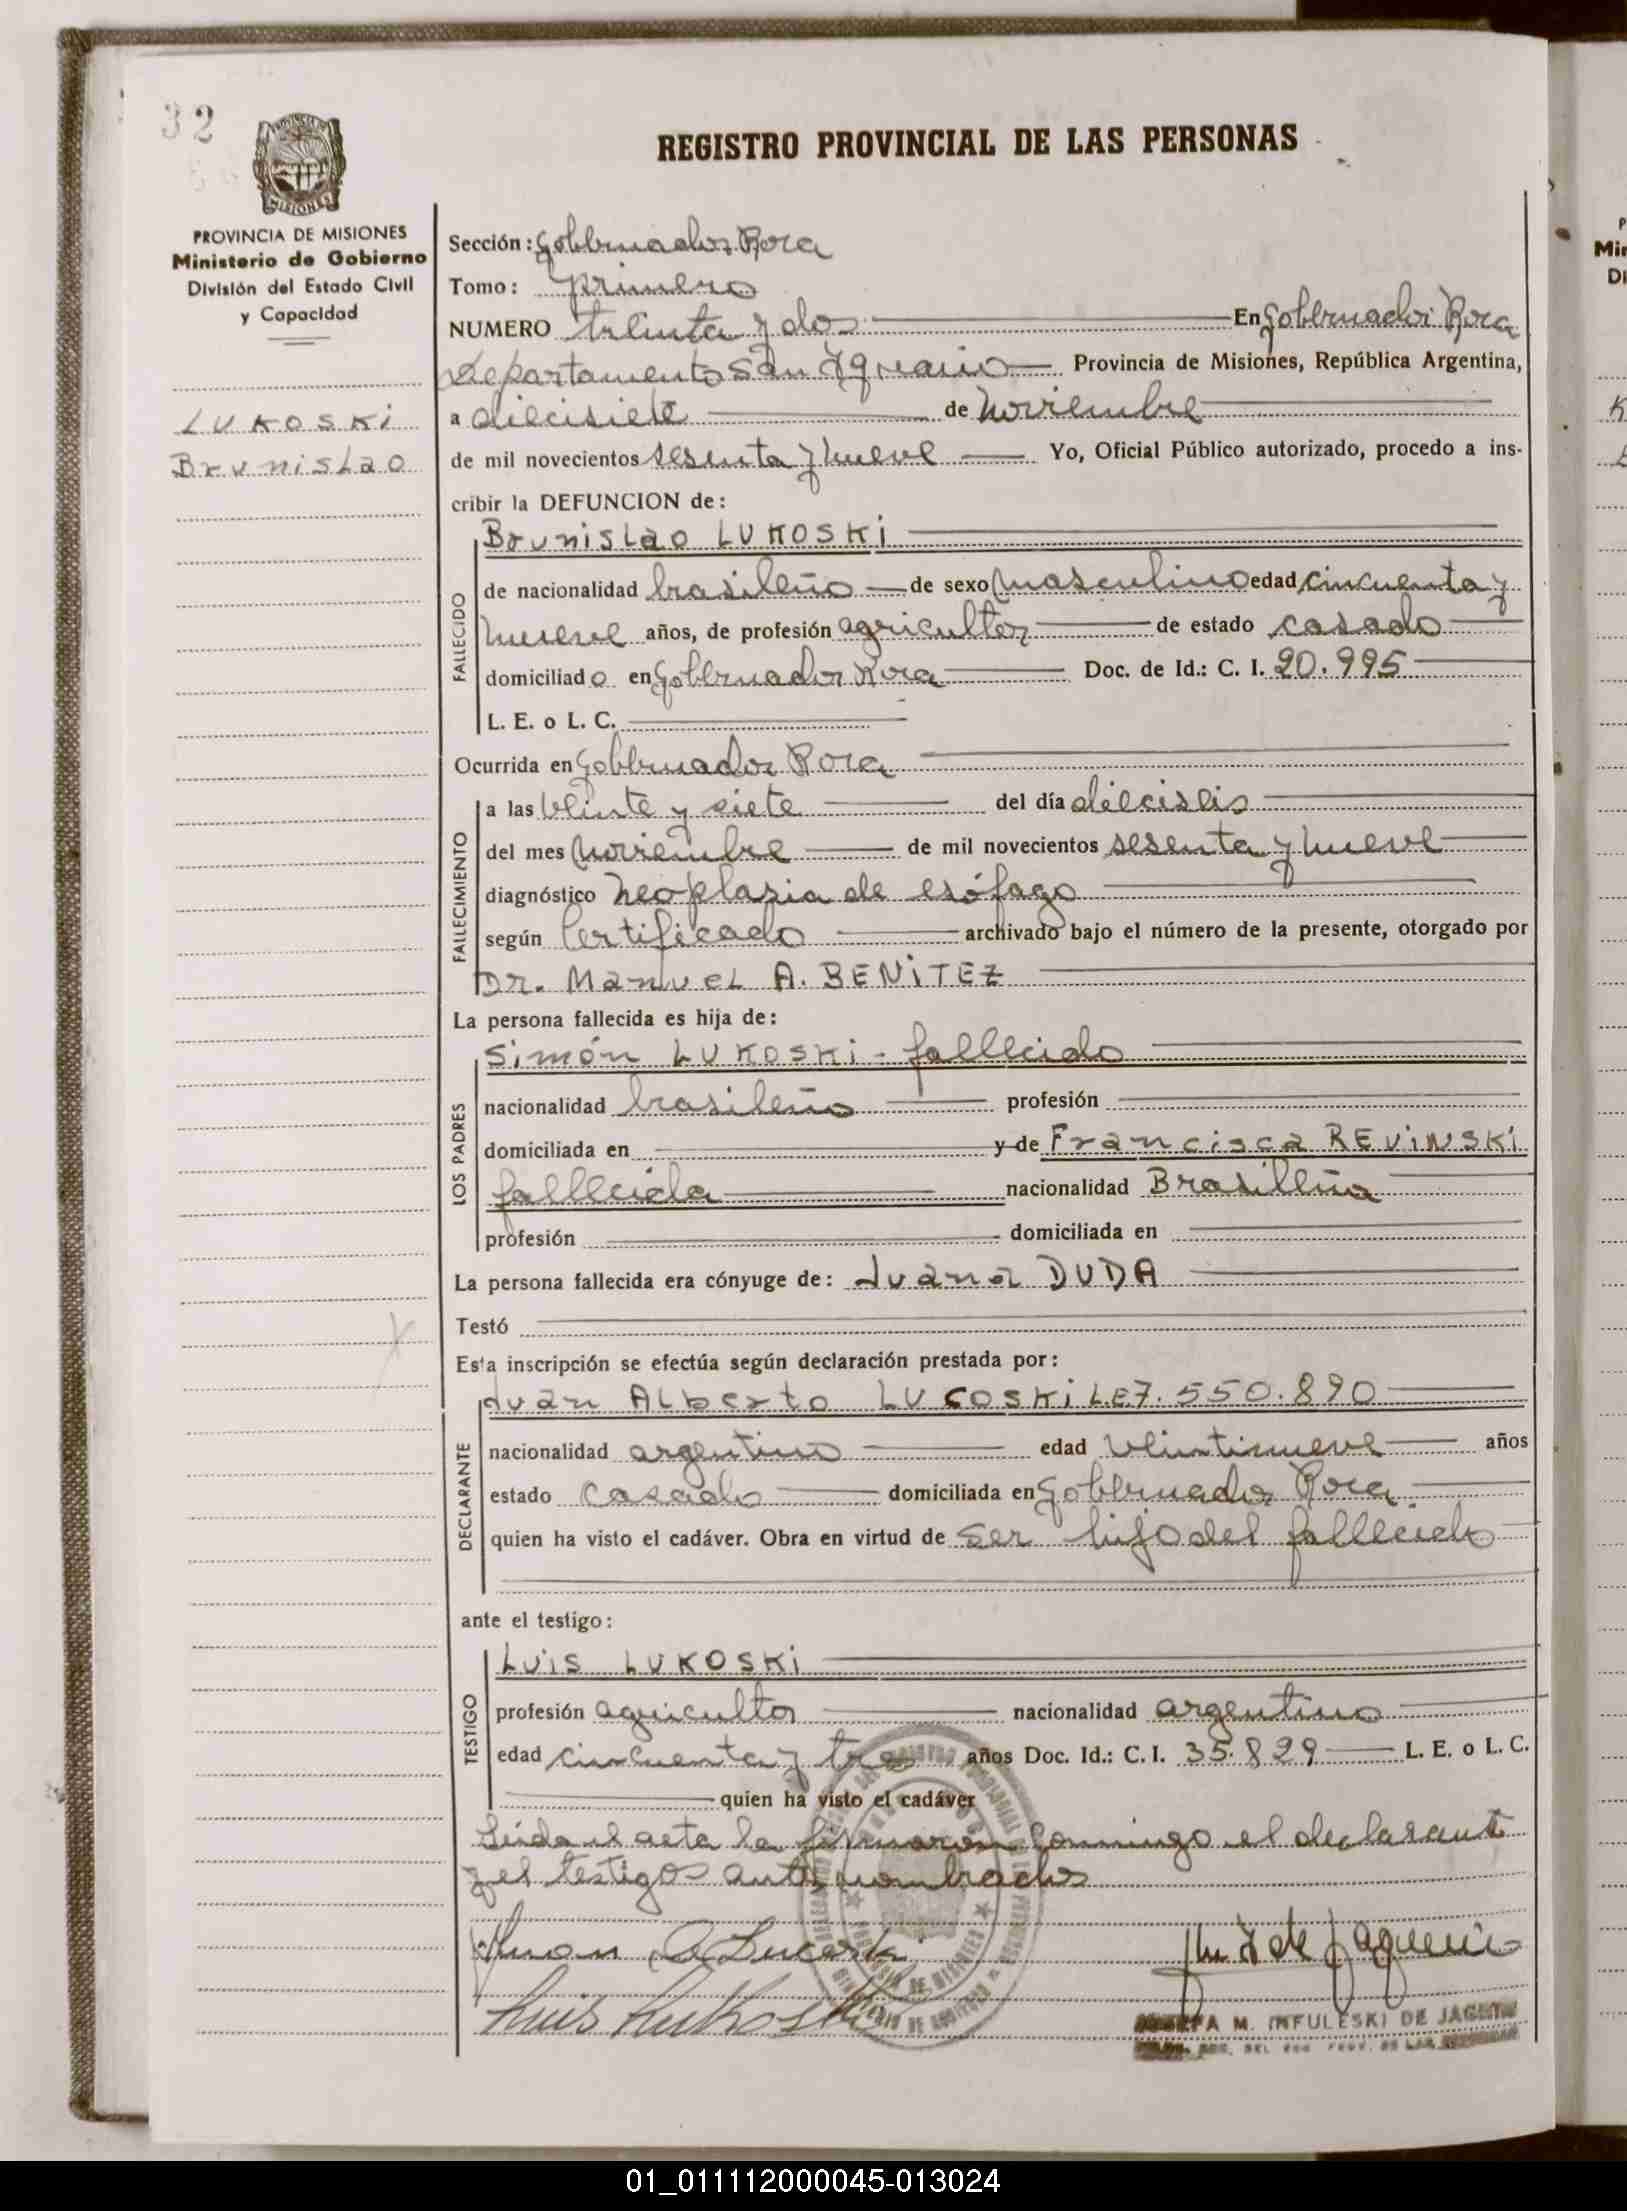 32
REGISTRO PROVINCIAL DE LAS PERSONAS
PROVINCIA DE MISIONES
Ministerio de Gobierno
División del Estado Civil
y Capacidad
LUKOSKi
BrunisLao
Sección: Gobernador Roca
Tomo: primero
NUMERO treinta y dos En Gobernador Roca
Departamento San Ignacio Provincia de Misiones, República Argentina,
a diecisiete de noviembre
de mil novecientos sesenta y nueve Yo, Oficial Público autorizado, procedo a ins-
cribir la DEFUNCION de:
BrunisLao LUKOSKi
FALLECIDO
de nacionalidad brasileño de sexo masculino edad cincuenta y
nueve años, de profesión agricultor de estado casado
domiciliado en Gobernador Roca Doc. de Id.: C. I. 20.995
L. E. o L. C.
Ocurrida en Gobernador Roca
FALLECIMIENTO
a las veinte y siete del día dieciseis
del mes noviembre de mil novecientos sesenta y nueve
diagnóstico neoplasia de esófago
según Certificado archivado bajo el número de la presente, otorgado por
Dr. ManueL A. BENiTEZ
La persona fallecida es hija de:
LOS PADRES
Simón LUKOSKi - fallecido
nacionalidad brasileño profesión
domiciliada en y de Francisca REViNSKi
fallecida nacionalidad Brasileña
profesión domiciliada en
La persona fallecida era cónyuge de: Juana DUDA
Testó
Esta inscripción se efectúa según declaración prestada por:
DECLARANTE
Juan ALberto LUCOSKi L.E 7.550.890
nacionalidad argentino edad veintinueve años
estado casado domiciliada en Gobernador Roca
quien ha visto el cadáver. Obra en virtud de ser hijo del fallecido
ante el testigo:
TESTIGO
Luis LUKOSKi
profesión agricultor nacionalidad argentino
edad cincuenta y tres años Doc. Id.: C. I. 35.829 L. E. o L. C.
quien ha visto el cadáver
Leída el acta la firmaron conmigo el declarante
y el testigos antes nombrados
Juan A Lucoski
Luis Lukoski
M. INFULESKI DE
01_011112000045-013024